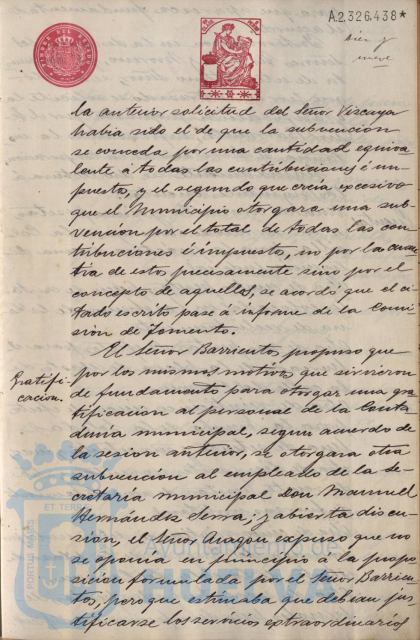 A.2.326.438*
Diez y
nueve
la anterior solicitud del Señor Vizcaya
habia sido el de que la subvencion
se conceda por una cantidad equiva-
lente á todas las contribuciones é im-
puestos, y el segundo que creia excesivo
que el Municipio otorgara una sub-
vencion por el total de todas las con-
tribuciones é impuesto, no por la cuan-
tia de estos precisamente sino por el
concepto de aquellas, se acordó que el ci-
tado escrito pase á informe de la Comi-
sion de Fomento.
Gratifi-
cacion.
El Señor Barrientos propuso que
por los mismos motivos que sirvieron
de fundamento para otorgar una gra-
tificacion al personal de la Conta-
duria municipal, segun acuerdo de
la sesion anterior, se otorgara otra
subvencion al empleado de la Se-
cretaria municipal Don Manuel
Hernández Serra; y abierta discu-
sion, el Señor Aragón expuso que no
se oponia en principio á la propo-
sicion formulada por el Señor Barrien-
tos, pero que estimaba que debian jus-
tificarse los servicios extraordinarios
PORTUS MARIS
ET TERRÆ
Ayuntamiento de
HUELVA